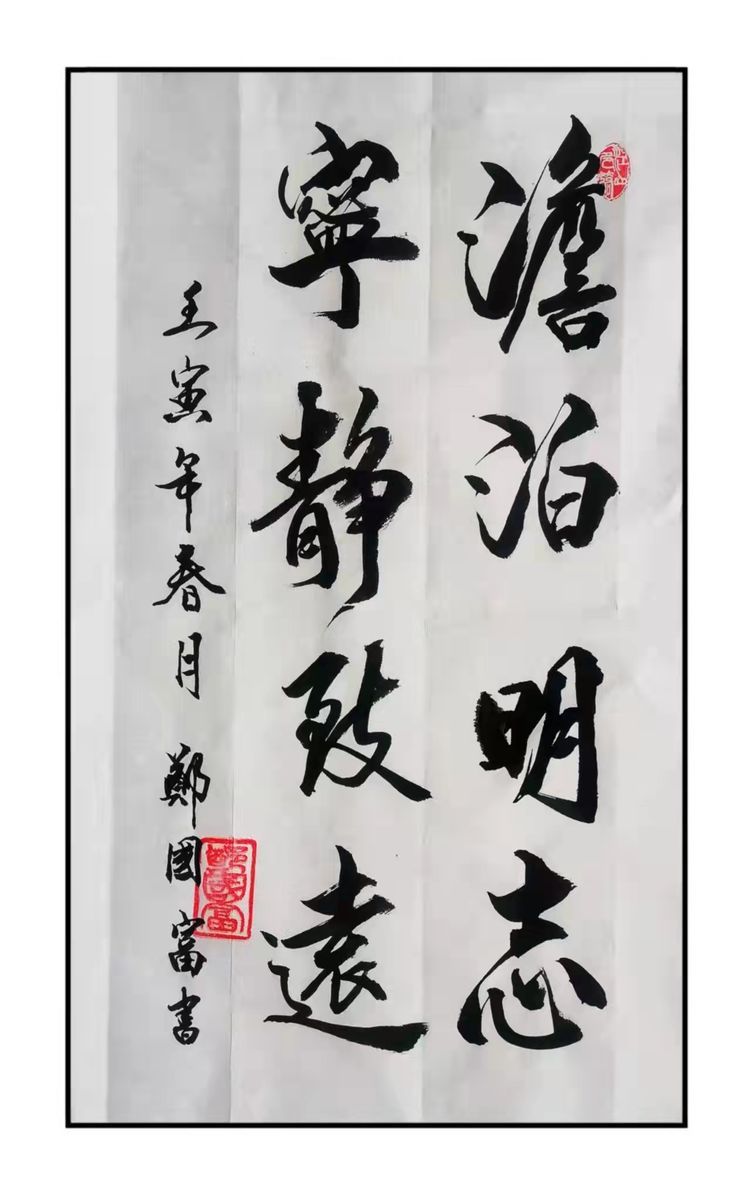 澹泊明志
寧靜致遠
壬寅年春月 鄭國富書
鄭國富